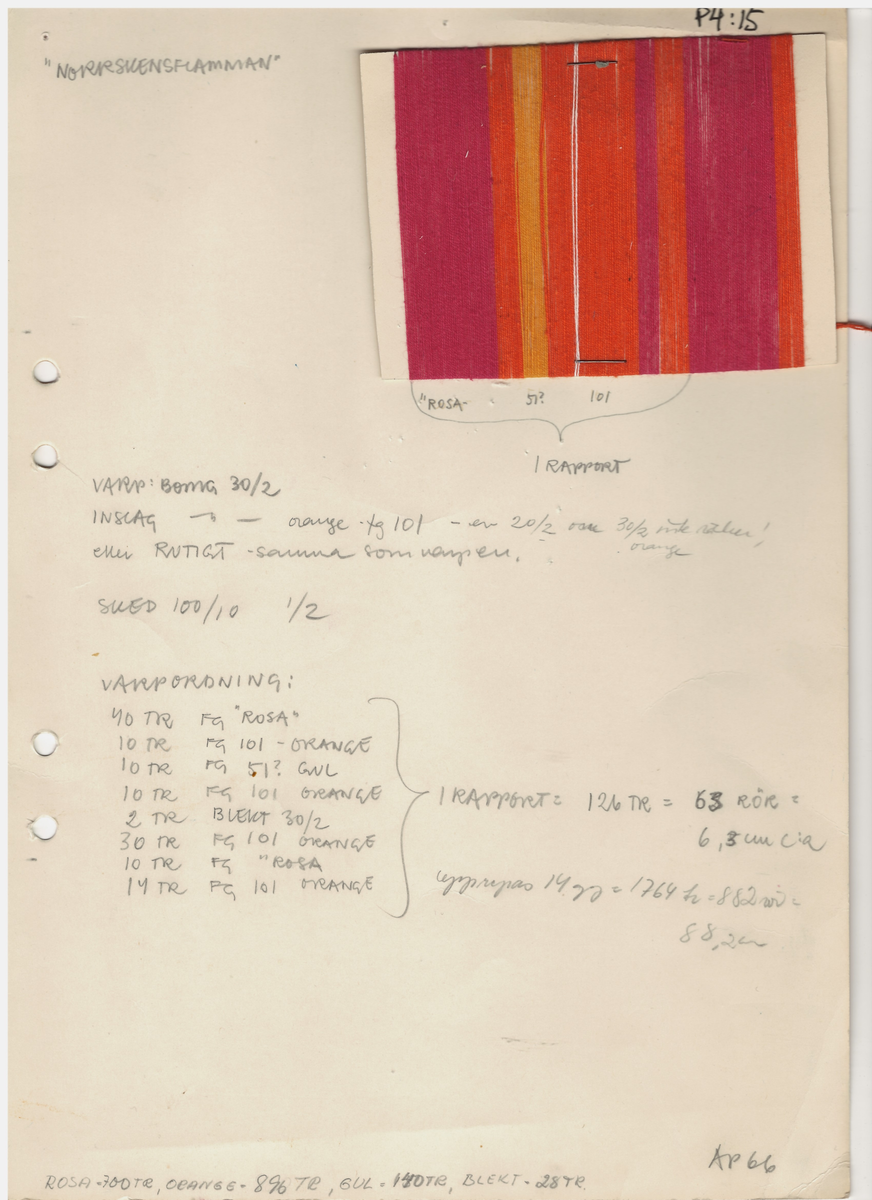 P4:15
"NORRSKENSFLAMMAN"
"ROSA- 51? 101
1 RAPPORT
VARP: BOMG 30/2
INSLAG — " — orange fg 101 - en 20/2 om 30/2 inte räcker!
orange
eller RUTIGT - samma som varpen.
SKED 100/10 1/2
VARPORDNING:
40 TR FG "ROSA"
10 TR FG 101 - ORANGE
10 TR FG 51? GUL
10 TR FG 101 ORANGE
2 TR BLEKT 30/2
30 TR FG 101 ORANGE
10 TR FG "ROSA
14 TR FG 101 ORANGE
1 RAPPORT = 126 TR = 63 RÖR =
6,3 cm c:a
upprepas 14 gg = 1764 tr = 882 rör =
88,2 cm
AP 66
ROSA - 700 TR, ORANGE - 896 TR, GUL = 140 TR, BLEKT - 28 TR.